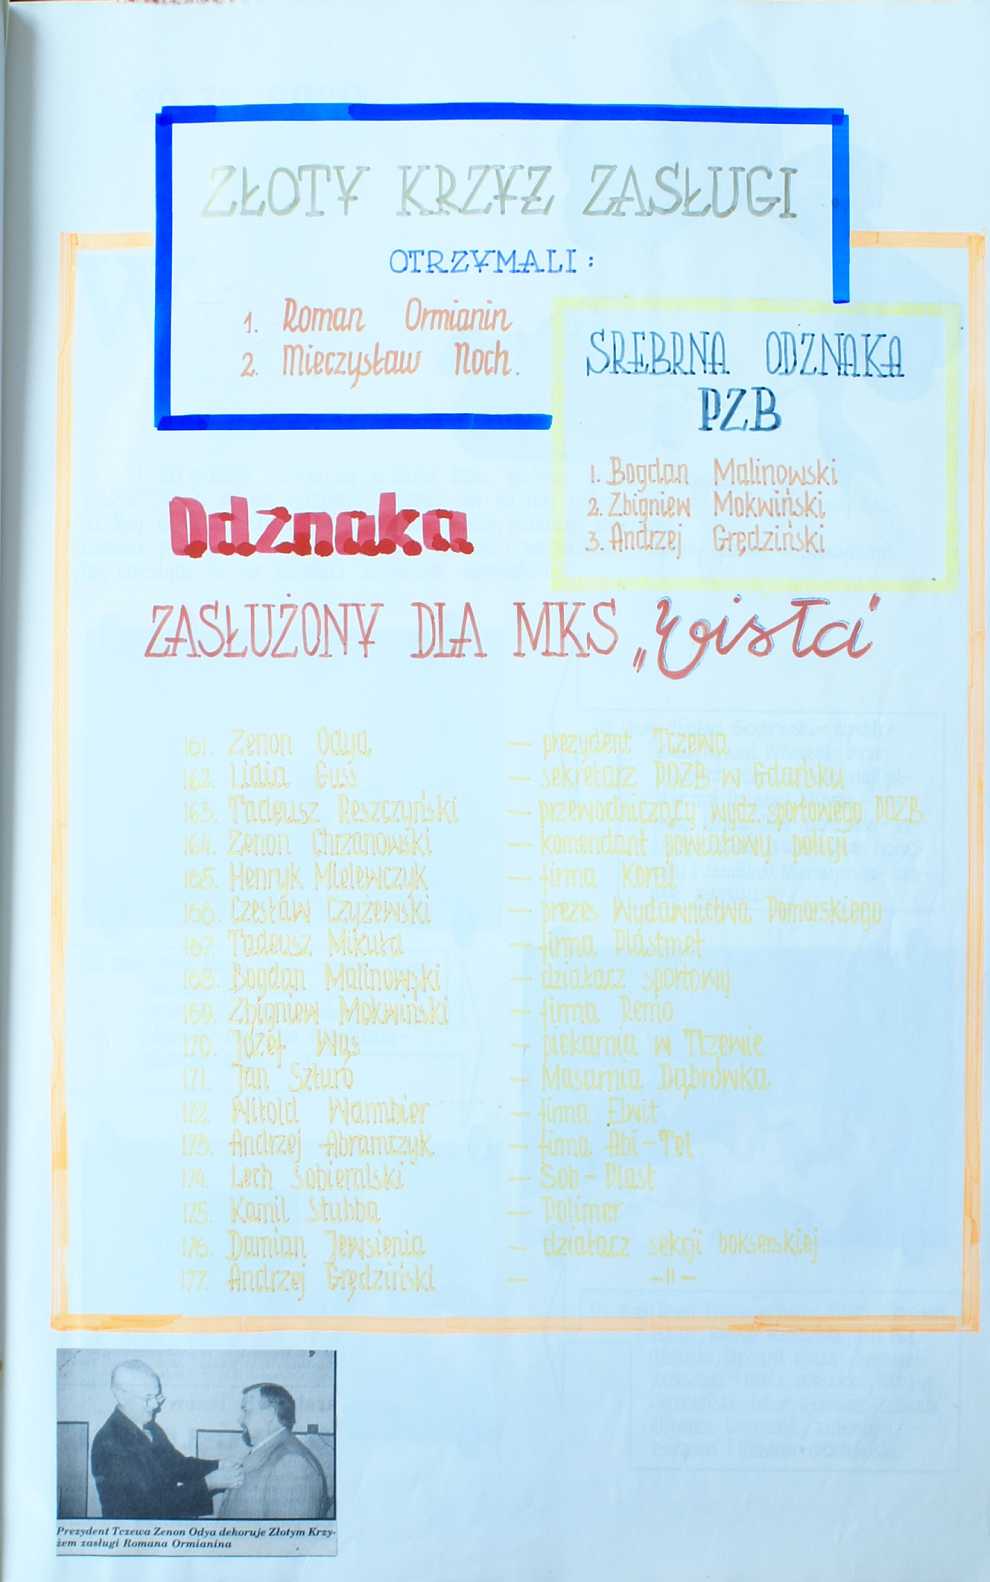 ZŁOTY KRZYŻ ZASŁUGI
OTRZYMALI:
1. Roman Ormianin
2. Mieczysław Noch.
SREBRNA ODZNAKA
PZB
1. Bogdan Malinowski
2. Zbigniew Mokwiński
3. Andrzej Grędziński
Odznaka
ZASŁUŻONY DLA MKS „Wisła"
161. Zenon Odya — prezydent Tczewa
162. Lidia Guś — sekretarz POZB w Gdańsku
163. Tadeusz Reszczyński — przewodniczący wydz. sportowego POZB
164. Zenon Chrzanowski — komendant powiatowy policji
165. Henryk Mielewczyk — firma Koral
166. Czesław Czyżewski — prezes Wydawnictwa Pomorskiego
167. Tadeusz Mikuła — firma Plastmet
168. Bogdan Malinowski — działacz sportowy
169. Zbigniew Mokwiński — firma Remo
170. Józef Wąs — piekarnia w Tczewie
171. Jan Szturo — Masarnia Dąbrówka
172. Witold Warmbier — firma Elwit
173. Andrzej Abramczyk — firma Abi-Tel
174. Lech Sobieralski — Sob-Plast
175. Kamil Stubba — Polimer
176. Damian Jewsienia — działacz sekcji bokserskiej
177. Andrzej Grędziński — -"-
Prezydent Tczewa Zenon Odya dekoruje Złotym Krzy-
żem zasługi Romana Ormianina